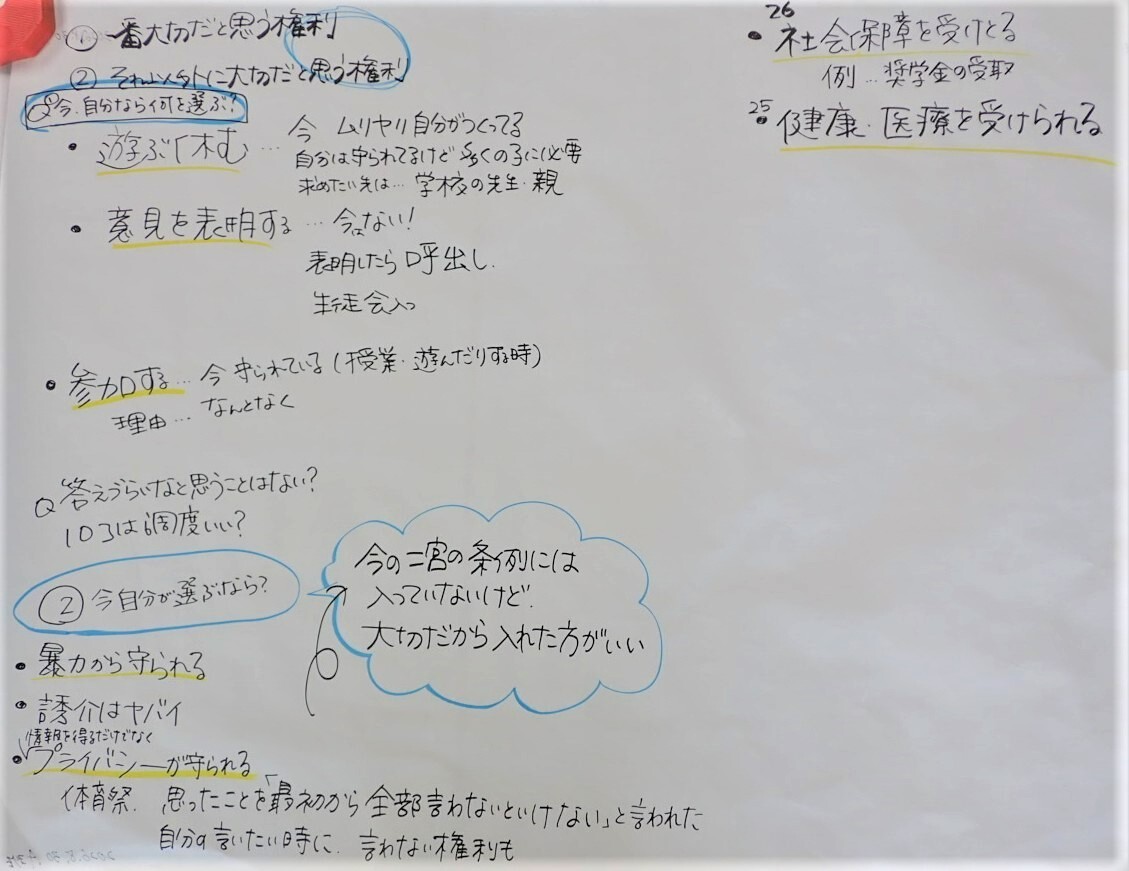 ① 一番大切だと思う権利
② それ以外に大切だと思う権利
Q 今、自分なら何を選ぶ?
・遊ぶ 休む … 今 ムリヤリ自分がつくってる
自分は守られてるけど 多くの子に必要
求めたい先は… 学校の先生・親
・意見を表明する … 今はない!
表明したら呼出し.
生徒会入っ
・参加する… 今守られている(授業・遊んだりする時)
理由… なんとなく
Q 答えづらいなと思うことはない?
10コは調度いい?
② 今自分が選ぶなら?
今の二宮の条例には
入っていないけど.
大切だから入れた方がいい
・暴力から守られる
・誘介はヤバイ
情報を得るだけでなく
・プライバシーが守られる
体育祭. 思ったことを「最初から全部言わないといけない」と言われた
自分の言いたい時に. 言わない権利も
26
・社会保障を受けとる
例…奨学金の受取
25
・健康・医療を受けられる